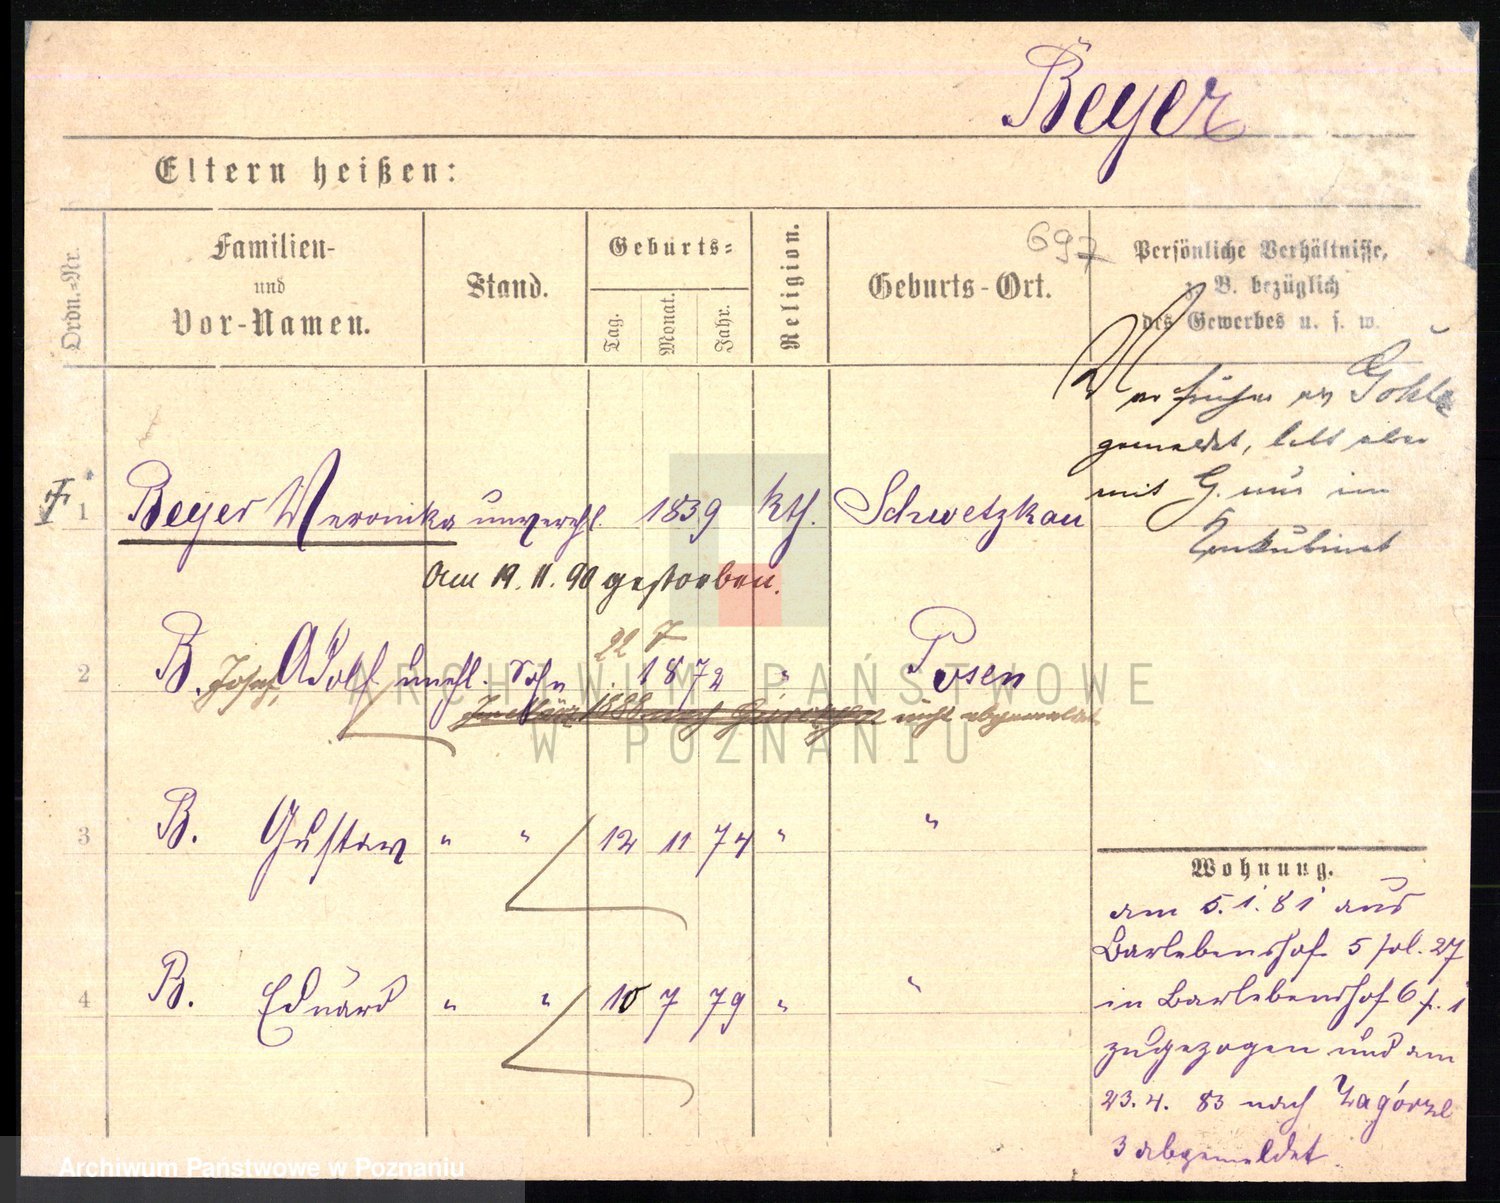 Beyer
Eltern heißen:
Ordn.=Nr.
Familien-
und
Vor-Namen.
Stand.
Geburts=
Tag.
Monat.
Jahr.
Religion.
Geburts-Ort.
697
Persönliche Verhältnisse,
z. B. bezüglich
des Gewerbes u. s. w.
War früher als Gohle
gemeldet, lebt aber
mit G. nur im
Konkubinat
1 Beyer Weronika unverehl. 1839 kth. Schwetzkau
Am 19. 11. 90 gestorben.
22 7
2 B. Josef, Adolf unehl. Sohn 1872 " Posen
nicht abgemeldet
3 B. Gustav " " 12 11 74 " "
4 B. Eduard " " 10 7 79 " "
Wohnung.
am 5. 1. 81 aus
Barlebenshof 5 fol. 27
in Barlebenshof 6 f. 1
zugezogen und am
23. 4. 83 nach Zagórze
3 abgemeldet
ARCHIWUM PAŃSTWOWE
W POZNANIU
Archiwum Państwowe w Poznaniu